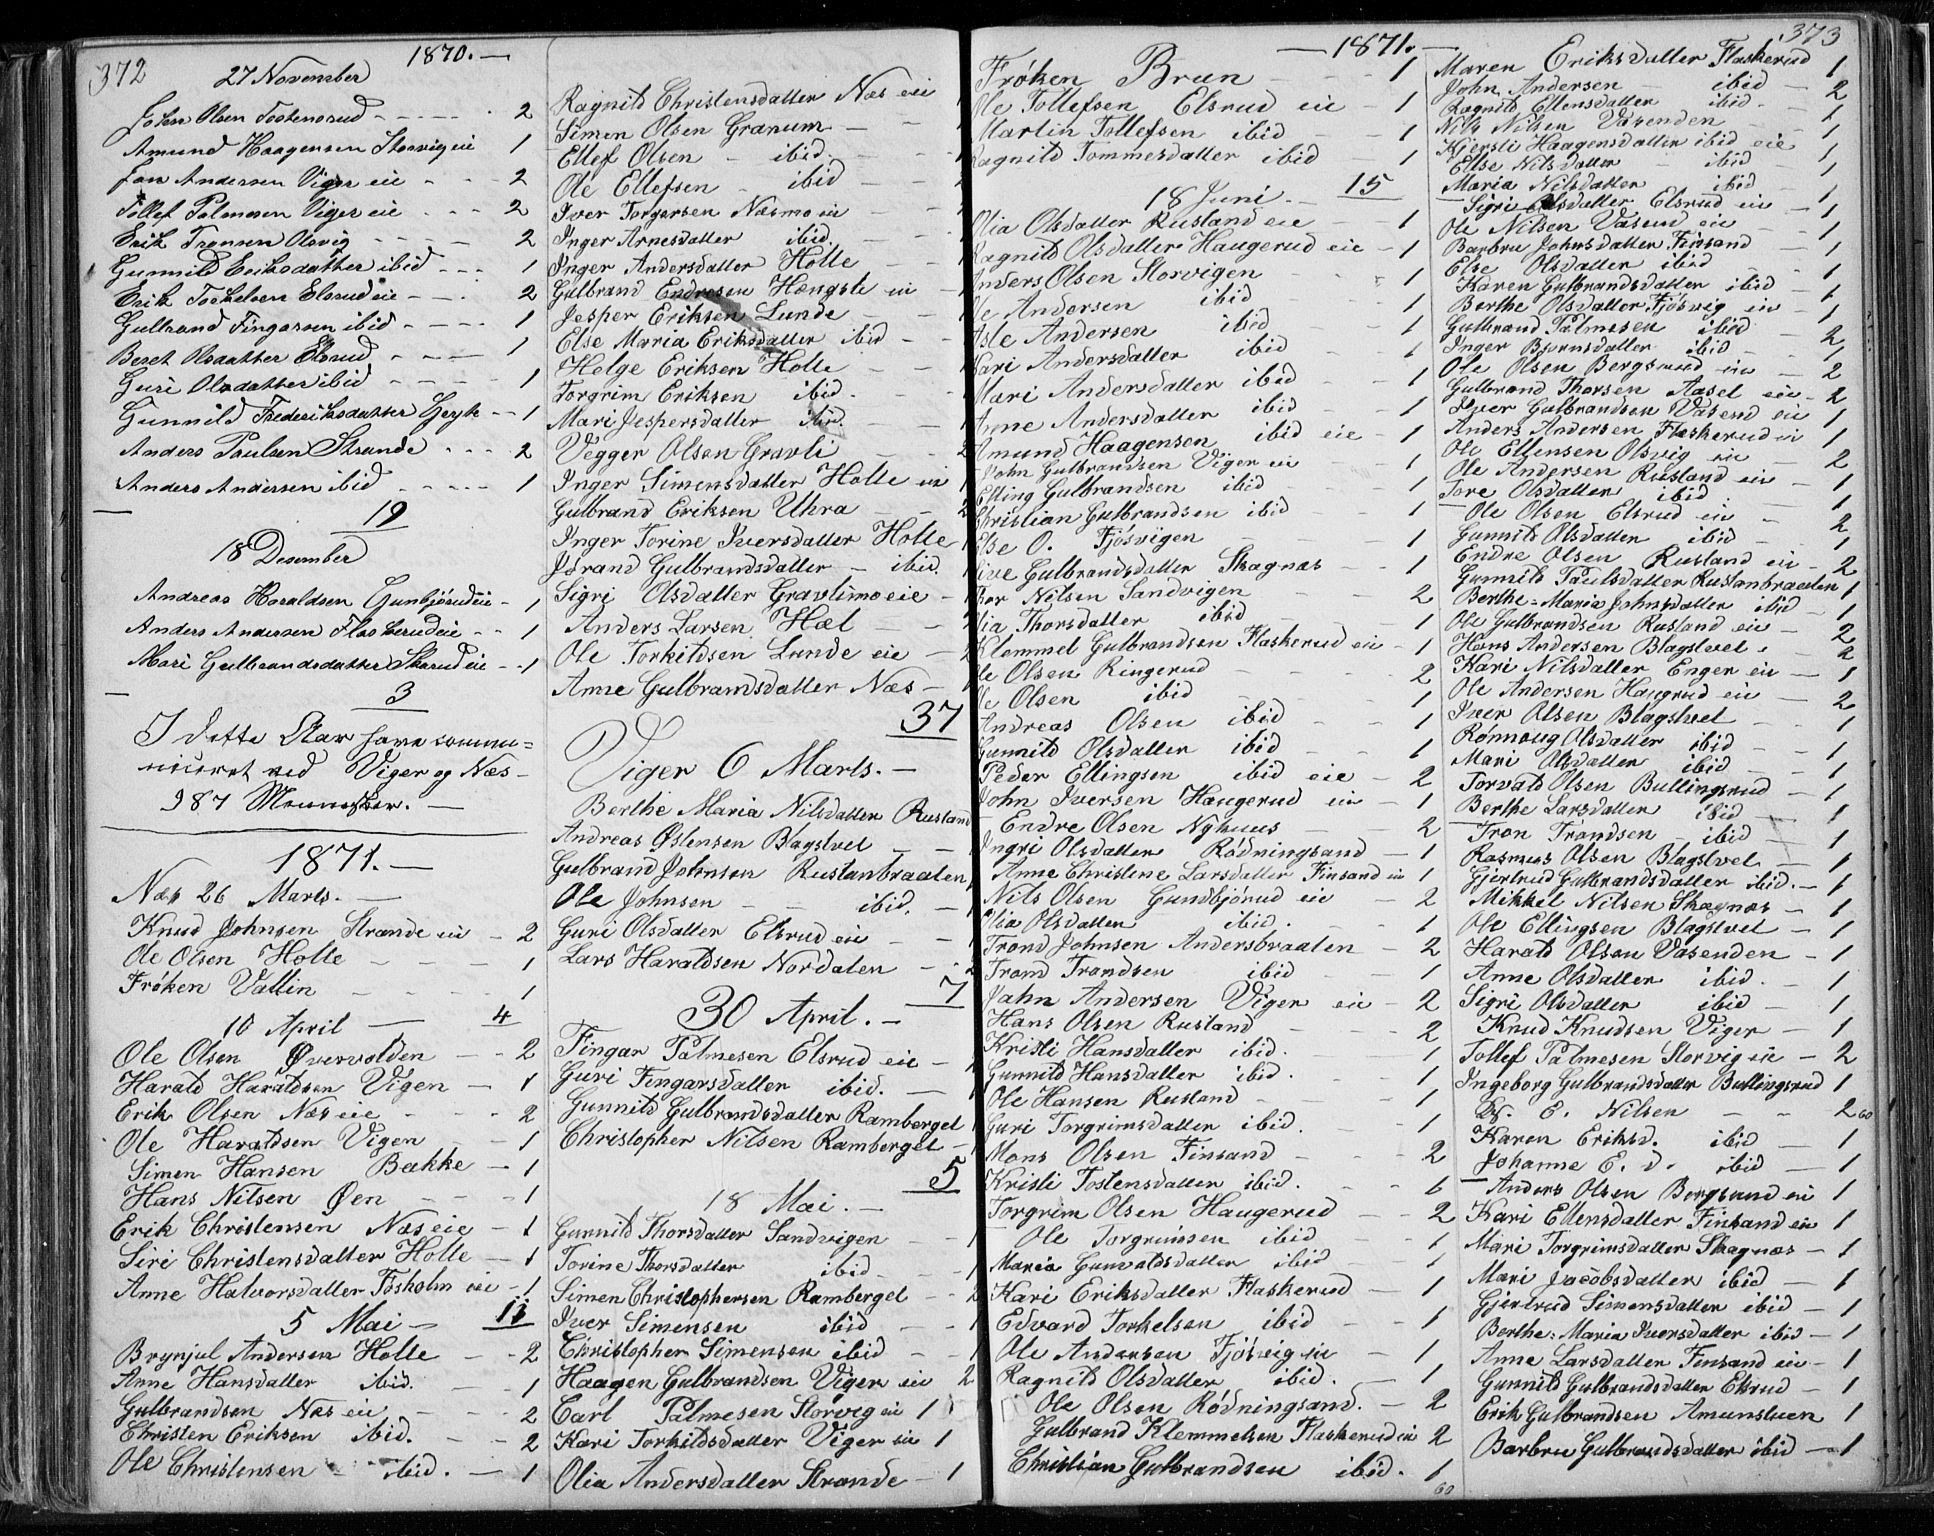 372
1870.
27 November
Joten Olsen Tostensrud - 2
Amund Haagensen Storvig eie 1
Jan Andersen Viger eie - 2
Tollef Palmesen Viger eie - 2
Erik Tronsen Olsvig - 2
Gunnild Eriksdatter ibid - 1
Erik Torkelsen Elsrud eie - 2
Gulbrand Fingarsen ibid - 1
Beret Olsdatter Elsrud - 1
Guri Olsdatter ibid - 1
Gunnild Frederiksdatter - 1
Anders Paulsen Strande - 2
Anders Andersen ibid - 1
19
18 Desember
Andreas Haraldsen Gunbjørud eie - 1
Anders Andersen Flaskerud eie - 1
Mari Gulbrandsdatter Skarud eie - 1
3
I dette Aar have commu=
niceret ved Viger og Næs -
987 Mennesker. -
1871. -
Næs 26 Marts. -
Knud Johnsen Strande eie - 2
Ole Olsen Holte - 1
Frøken Vallin - 1
10 April - 4
Ole Olsen Øvervolden - 2
Harald Haraldsen Vigen - 1
Erik Olsen Næs eie - 2
Ole Haraldsen Vigen - 1
Simen Hansen Bække - 1
Hans Nilsen Øen - 1
Erik Christensen Næs eie - 1
Siri Christensdatter Holte - 1
Anne Halvorsdatter Fosholm eie - 1
5 Mai - 11
Brynjul Andersen Holte - 2
Anne Hansdatter ibid. - 1
Gulbrandsen Næs eie - 2
Christen Eriksen ibid. - 2
Ole Christensen - ibid. - 1
Ragnild Christensdatter Næs eie
Simen Olsen Granum -
Ellef Olsen - ibid.
Ole Ellefsen - ibid
Iver Torgersen Næsmo eie
Inger Arnesdatter ibid.
Inger Andersdatter Holte
Gulbrand Endresen Hængsle eie
Jesper Eriksen Lunde
Else Maria Eriksdatter ibid
Helge Eriksen Holte
Torgrim Eriksen ibid.
Mari Jespersdatter ibid.
Vegger Olsen Gravli
Inger Simensdatter Holte eie
Gulbrand Eriksen Uthra
Inger Torine Iversdatter Holte
Jørand Gulbrandsdatter - ibid.
Sigri Olsdatter Gravlimoeie
Anders Larsen Hæl
Ole Torkildsen Lunde eie
Anne Gulbrandsdatter Næs -
37
Viger 6 Marts. -
Berthe Maria Nilsdatter Rusland
Andreas Østensen Blagstvet
Gulbrand Johnsen Ruslanbraaten
Ole Johnsen - ibid.
Guri Olsdatter Elsrud eie
Lars Haraldsen Nordalen - 2
7
30 April. -
Fingar Palmesen Elsrud eie -
Guri Fingarsdatter ibid. -
Gunnild Gulbrandsdatter Ramberget
Christopher Nilsen Ramberget
5
18 Mai. -
Gunnild Thorsdatter Sandvigen - 1
Torine Thorsdatter ibid - 1
Simen Christophersen Ramberget - 2
Iver Simensen ibid - 1
Christopher Simensen ibid - 1
Haagen Gulbrandsen Viger eie 2
Carl Palmesen Storvig eie 1
Kari Torkildsdatter Viger eie 1
Olia Andersdatter Strande 1
373
1871. -
Frøken Brun - 1
Ole Tollefsen Elsrud eie - 1
Martin Tollefsen ibid - 1
Ragnild Tommesdatter ibid - 1
18 Juni. - 15
Olia Olsdatter Rusland eie 1
Ragnild Olsdatter Haugerud eie - 1
Anders Olsen Storvigen 1
Ole Andersen ibid - 1
Asle Andersen ibid - 1
Kari Andersdatter ibid - 1
Mari Andersdatter ibid - 1
Anne Andersdatter ibid - 1
Amund Haagensen ibid eie - 1
John Gulbrandsen Viger eie - 1
Elling Gulbrandsen ibid - 1
Christian Gulbrandsen ibid - 1
Else O. Fjøsvigen - 1
Live Gulbrandsdatter Skagnæs - 1
Thor Nilsen Sandvigen - 2
Olia Thorsdatter ibid - 1
Klemmet Gulbrandsen Flaskerud eie - 1
Ole Olsen Ringerud - 2
Ole Olsen ibid - 1
Andreas Olsen ibid - 1
Gunnild Olsdatter ibid - 1
Peder Ellingsen ibid eie - 2
John Iversen Haugerud eie - 1
Endre Olsen Nyhuus - 2
Ingri Olsdatter Rødningsand - 1
Anne Christene Larsdatter Finsand eie 1
Nils Olsen Gundbjørud eie - 2
Olia Olsdatter ibid. - 1
Trond Johnsen Andersbraaten - 2
Trond Trondsen ibid - 1
Jahn Andersen Viger eie - 2
Hans Olsen Rusland - 2
Kristi Hansdatter ibid. 1
Gunnild Hansdatter ibid. - 1
Ole Hansen Rusland - 1
Guri Torgrimsdatter ibid. - 1
Mons Olsen Finsand - 2
Kristi Tostensdatter ibid. - 6
Torgrim Olsen Haugerud - 2
Ole Torgrimsen ibid - 1
Maria Gunvaldsdatter ibid - 1
Kari Eriksdatter Flaskerud - 1
Edvard Torkelsen ibid - 1
Ole Andersen Fjøsvig eie - 1
Ragnild Olsdatter ibid. - 1
Ole Olsen Rødningsand. - 2
Gulbrand Klemmetsen Flaskerud eie 2
Christian Gulbrandsen ibid. 1
60
Maren Eriksdatter Flaskerud 1
John Andersen ibid - 2
Ragnild Ellensdatter ibid. - 1
Nils Nilsen Vasenden - 1
Kjersti Haagensdatter ibid eie 1
Else Nilsdatter - ibid 1
Maria Nilsdatter ibid - 1
Sigri Olsdatter Elsrud eie - 1
Ole Nilsen Vasend eie - 1
Barbru Johnsdatter Finsand 1
Else Olsdatter ibid - 1
Karen Gulbrandsdatter ibid - 1
Berthe Olsdatter Fjøsvig eie - 1
Gulbrand Palmesen ibid 2
Inger Bjørnsdatter ibid - 1
Ole Olsen Bergsrud eie - 2
Gulbrand Thorsen Aasel eie - 2
Iver Gulbrandsen Vasend eie 1
Anders Andersen Flaskerud eie 1
Ole Ellensen Olsvig eie - 2
Ole Andersen Rusland eie - 1
Tore Olsdatter ibid 1
Ole Olsen Elsrud eie - 2
Gunnild Olsdatter ibid - 1
Endre Olsen Rusland eie - 2
Gunnild Paulsdatter Ruslanbraaten 1
Berthe Maria Johnsdatter ibid - 1
Ole Gulbrandsen Rusland eie - 2
Hans Andersen Blagstvet - 2
Kari Nilsdatter Enger eie - 1
Ole Andersen Haugrud eie - 2
Iver Olsen Blagstvet - 1
Rønnaug Olsdatter ibid - 1
Mari Olsdatter ibid - 1
Torvald Olsen Bullingsrud - 1
Berthe Larsdatter ibid - 1
Tron Trondsen - ibid - 1
Rasmus Olsen Blagstvet - 1
Gjertrud Gulbrandsdatter ibid. - 1
Mikkel Nilsen Skagnæs - 1
Ole Ellingsen Blagstvet - 1
Harald Olsen Vasenden - 1
Anne Olsdatter ibid. - 1
Sigri Olsdatter ibid - 1
Knud Knudsen Viger - 1
Tollef Palmesen Storvig eie - 2
Ingeborg Gulbrandsdatter Bullingsrud 1
E. Nilsen - 2 60
Karen Eriksd. ibid - 1
Johanne E. d. ibid - 1
Anders Olsen Bergsrud eie 1
Kari Ellensdatter Finsand eie 1
Mari Torgrimsdatter Skagnæs - 1
Mari Jacobsdatter ibid - 1
Gjertrud Simensdatter ibid - 1
Berthe Maria Iversdatter ibid - 1
Anne Larsdatter Finsand eie - 1
Gunnild Gulbrandsdatter Elsrud - 1
Erik Gulbrandsen Amunsluen 1
Barbru Gulbrandsdatter ibid - 1